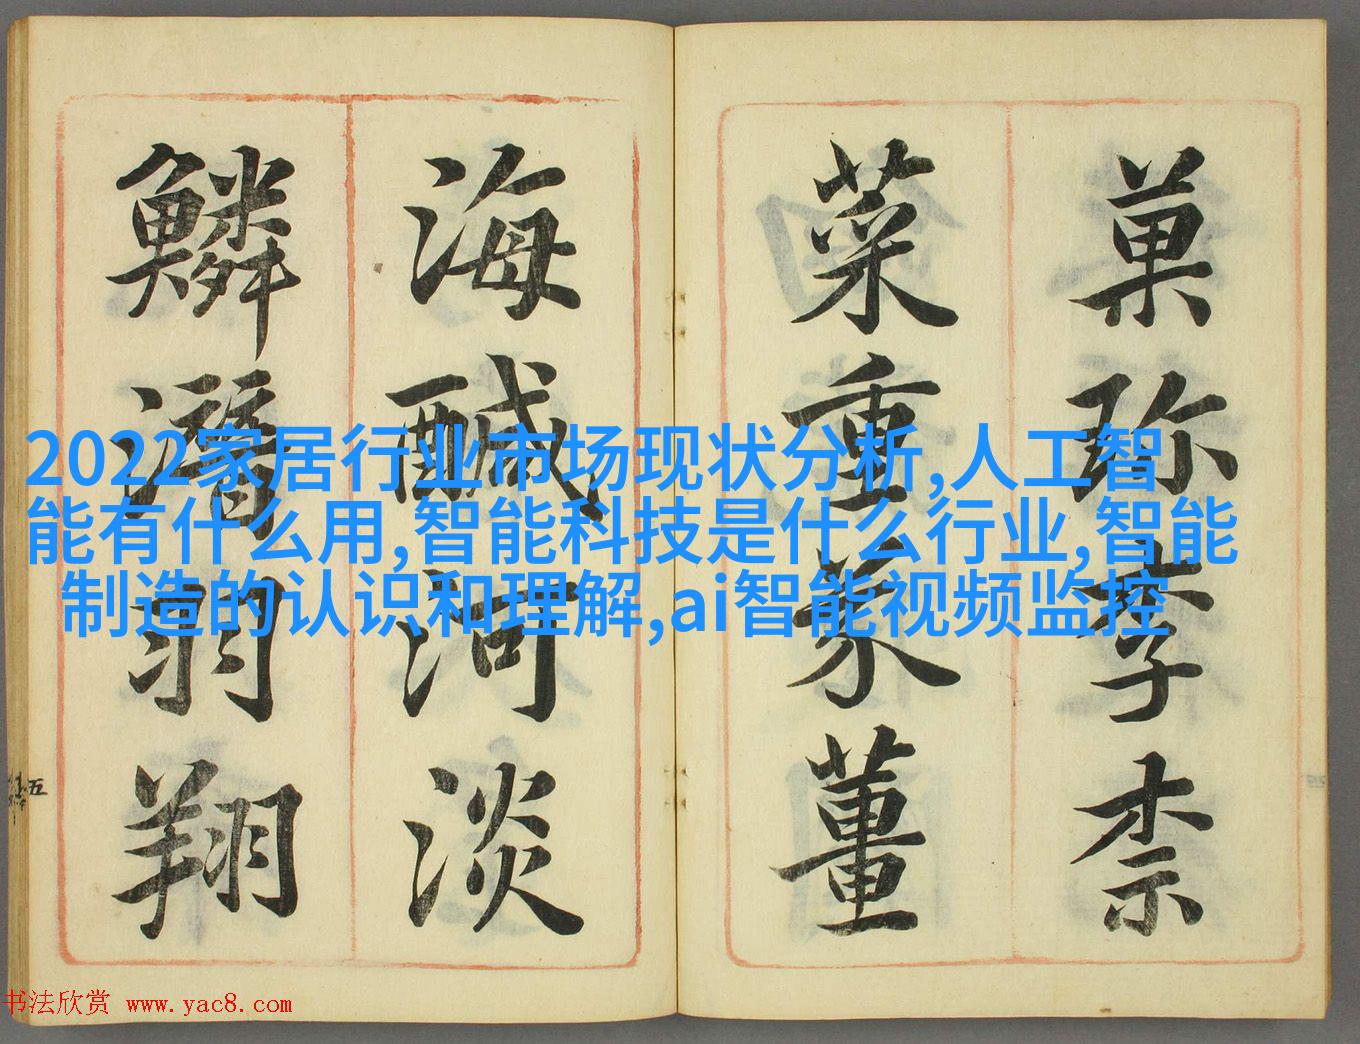 菓珎李柰
菜重芥薑
海醎河淡
鱗潛羽翔
五
2022家居行业市场现状分析,人工智
能有什么用,智能科技是什么行业,智能
制造的认识和理解,ai智能视频监控
书法欣赏 www.yac8.com